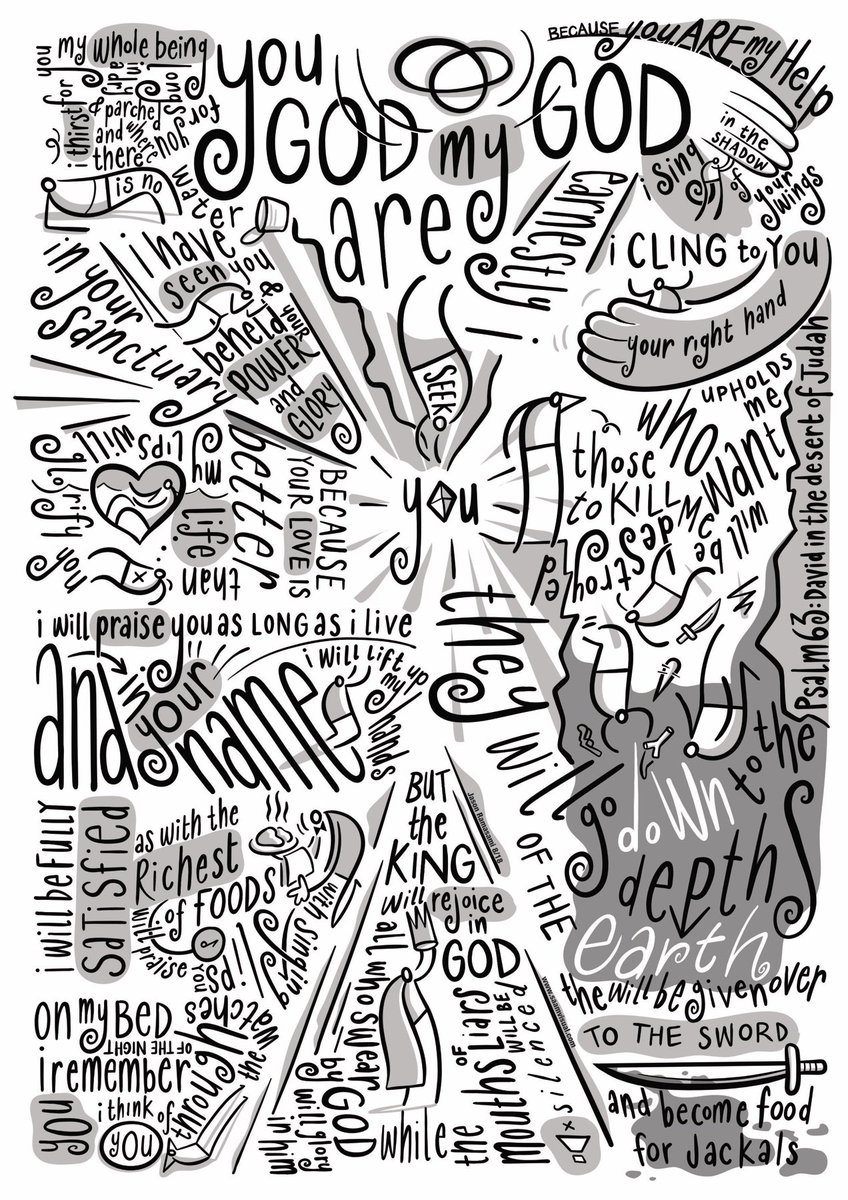 you
GOD
are
my
GOD
earnestly
i
SEEK
you
i thirst for
you
my whole being
longs
for
you
in a dry
& parched
and
there
where
is no
water
i have
seen you
in your
sanctuary
& beheld
your
POWER
and
GLORY
BECAUSE
YOUR LOVE IS
better
than
life
my lips
will
glorify
you
i will praise you as LONG as i live
and in
your
name
i will lift up
my
hands
i will be FULLY
Satisfied
as with the
Richest
of FOODS
with singing
lips
will praise
you
on my BED
i remember
you
i think of
you
through
the
watches
OF THE NIGHT
BECAUSE you ARE my Help
i Sing
in the
SHADOW
of
your
wings
i CLING to YOU
your right hand
UPHOLDS
me
those
who
want
to KILL me
will be
destroy
ed
they will
go
down
to the
depths
OF THE
earth
the will be given over
TO THE SWORD
and become food
for Jackals
BUT
the
KING
will rejoice
in
GOD
all who swear
by GOD
will glory
in him
while
the
mouths
OF
Liars
WILL BE
silenced
Psalm 63: David in the desert of Judah
Jason Ramasami 8/18
www.saamvisual.com